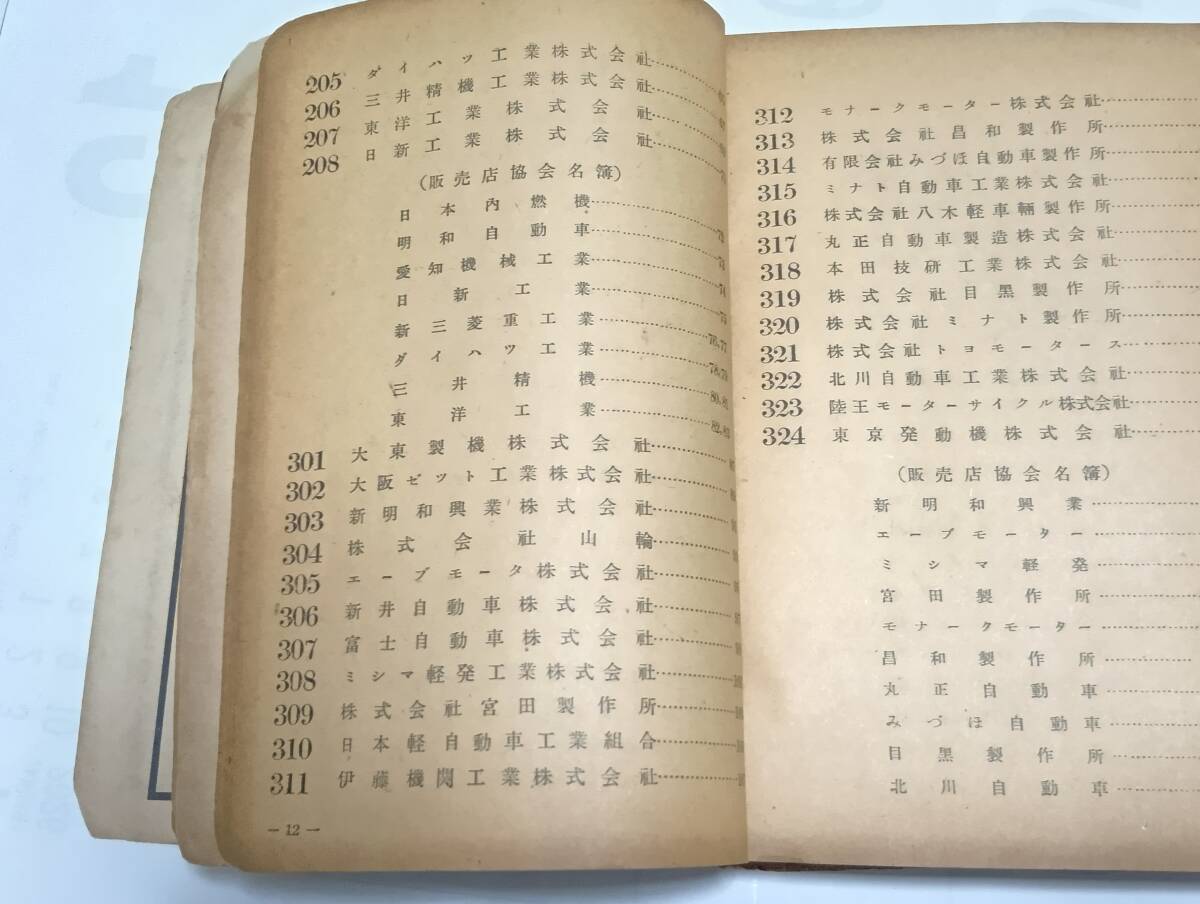 205 ダイハツ工業株式会社
206 三井精機工業株式会社
207 東洋工業株式会社
208 日新工業株式会社
(販売店協会名簿)
日本内燃機 73
明和自動車 73
愛知機械工業 74
日新工業 75
新三菱重工業 76,77
ダイハツ工業 78,79
三井精機 80,81
東洋工業 82,83
301 大東製機株式会社
302 大阪ゼット工業株式会社
303 新明和興業株式会社
304 株式会社山輪
305 エーブモータ株式会社
306 新井自動車株式会社
307 富士自動車株式会社
308 ミシマ軽発工業株式会社
309 株式会社宮田製作所
310 日本軽自動車工業組合
311 伊藤機関工業株式会社
— 12 —
312 モナークモーター株式会社
313 株式会社昌和製作所
314 有限会社みづほ自動車製作所
315 ミナト自動車工業株式会社
316 株式会社八木軽車輛製作所
317 丸正自動車製造株式会社
318 本田技研工業株式会社
319 株式会社目黒製作所
320 株式会社ミナト製作所
321 株式会社トヨモータース
322 北川自動車工業株式会社
323 陸王モーターサイクル株式会社
324 東京発動機株式会社
(販売店協会名簿)
新明和興業
エーブモーター
ミシマ軽発
宮田製作所
モナークモーター
昌和製作所
丸正自動車
みづほ自動車
目黒製作所
北川自動車